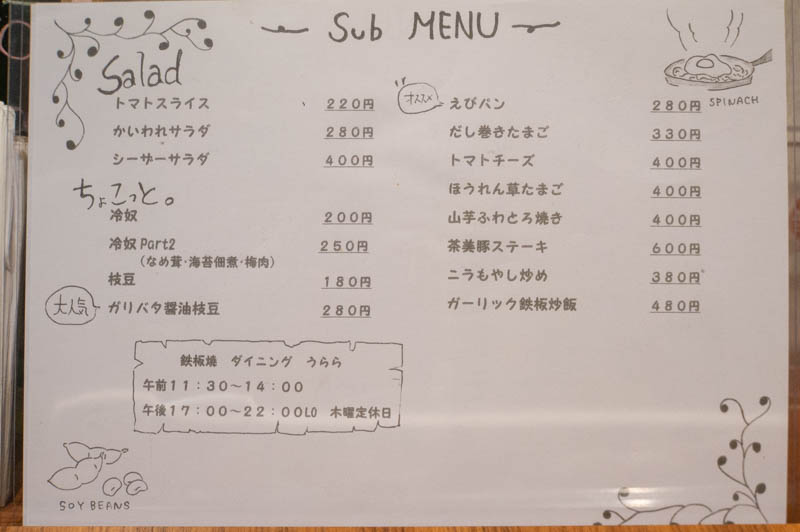 Sub MENU
Salad
トマトスライス 220円
かいわれサラダ 280円
シーザーサラダ 400円
ちょこっと。
冷奴 200円
冷奴 Part2 250円
(なめ茸・海苔佃煮・梅肉)
枝豆 180円
大人気 ガリバタ醤油枝豆 280円
オススメ えびパン 280円
SPINACH
だし巻きたまご 330円
トマトチーズ 400円
ほうれん草たまご 400円
山芋ふわとろ焼き 400円
茶美豚ステーキ 600円
ニラもやし炒め 380円
ガーリック鉄板炒飯 480円
鉄板焼 ダイニング うらら
午前11:30~14:00
午後17:00~22:00LO 木曜定休日
SOY BEANS